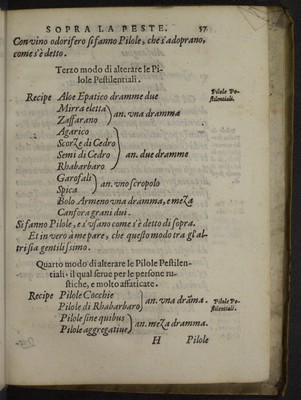 SOPRA LA PESTE. 57
Con vino odorifero si fanno Pilole, che s'adoprano,
come s'è detto.
Terzo modo di alterare le Pi-
lole Pestilentiali.
Pilole Pe-
stilentiali.
Recipe Aloe Epatico dramme due
Mirra eletta
Zaffarano
an. vna dramma
Agarico
Scorze di Cedro
Semi di Cedro
Rhabarbaro
an. due dramme
Garofali
Spica
an. vno scropolo
Bolo Armeno vna dramma, e meza
Canfora grani dui.
Si fanno Pilole, e s'vsano come s'è detto di sopra.
Et in vero à me pare, che questo modo tra gl'al-
tri sia gentilissimo.
Quarto modo di alterare le Pilole Pestilen-
tiali, il qual serue per le persone ru-
stiche, e molto affaticate.
Recipe Pilole Cocchie
Pilole di Rhabarbaro
an. vna drãma.
Pilole Pe-
stilentiali.
Pilole sine quibus
Pilole aggregatiue
an. meza dramma.
H Pilole